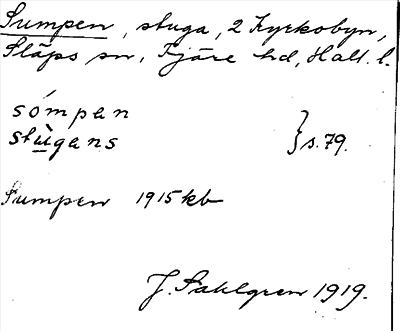 Sumpen, stuga, 2 Kyrkobyn,
Släps sn, Fjäre hd, Hall. l.
sómpan
stùgans } s. 79.
Sumpen 1915 kb
J. Sahlgren 1919.